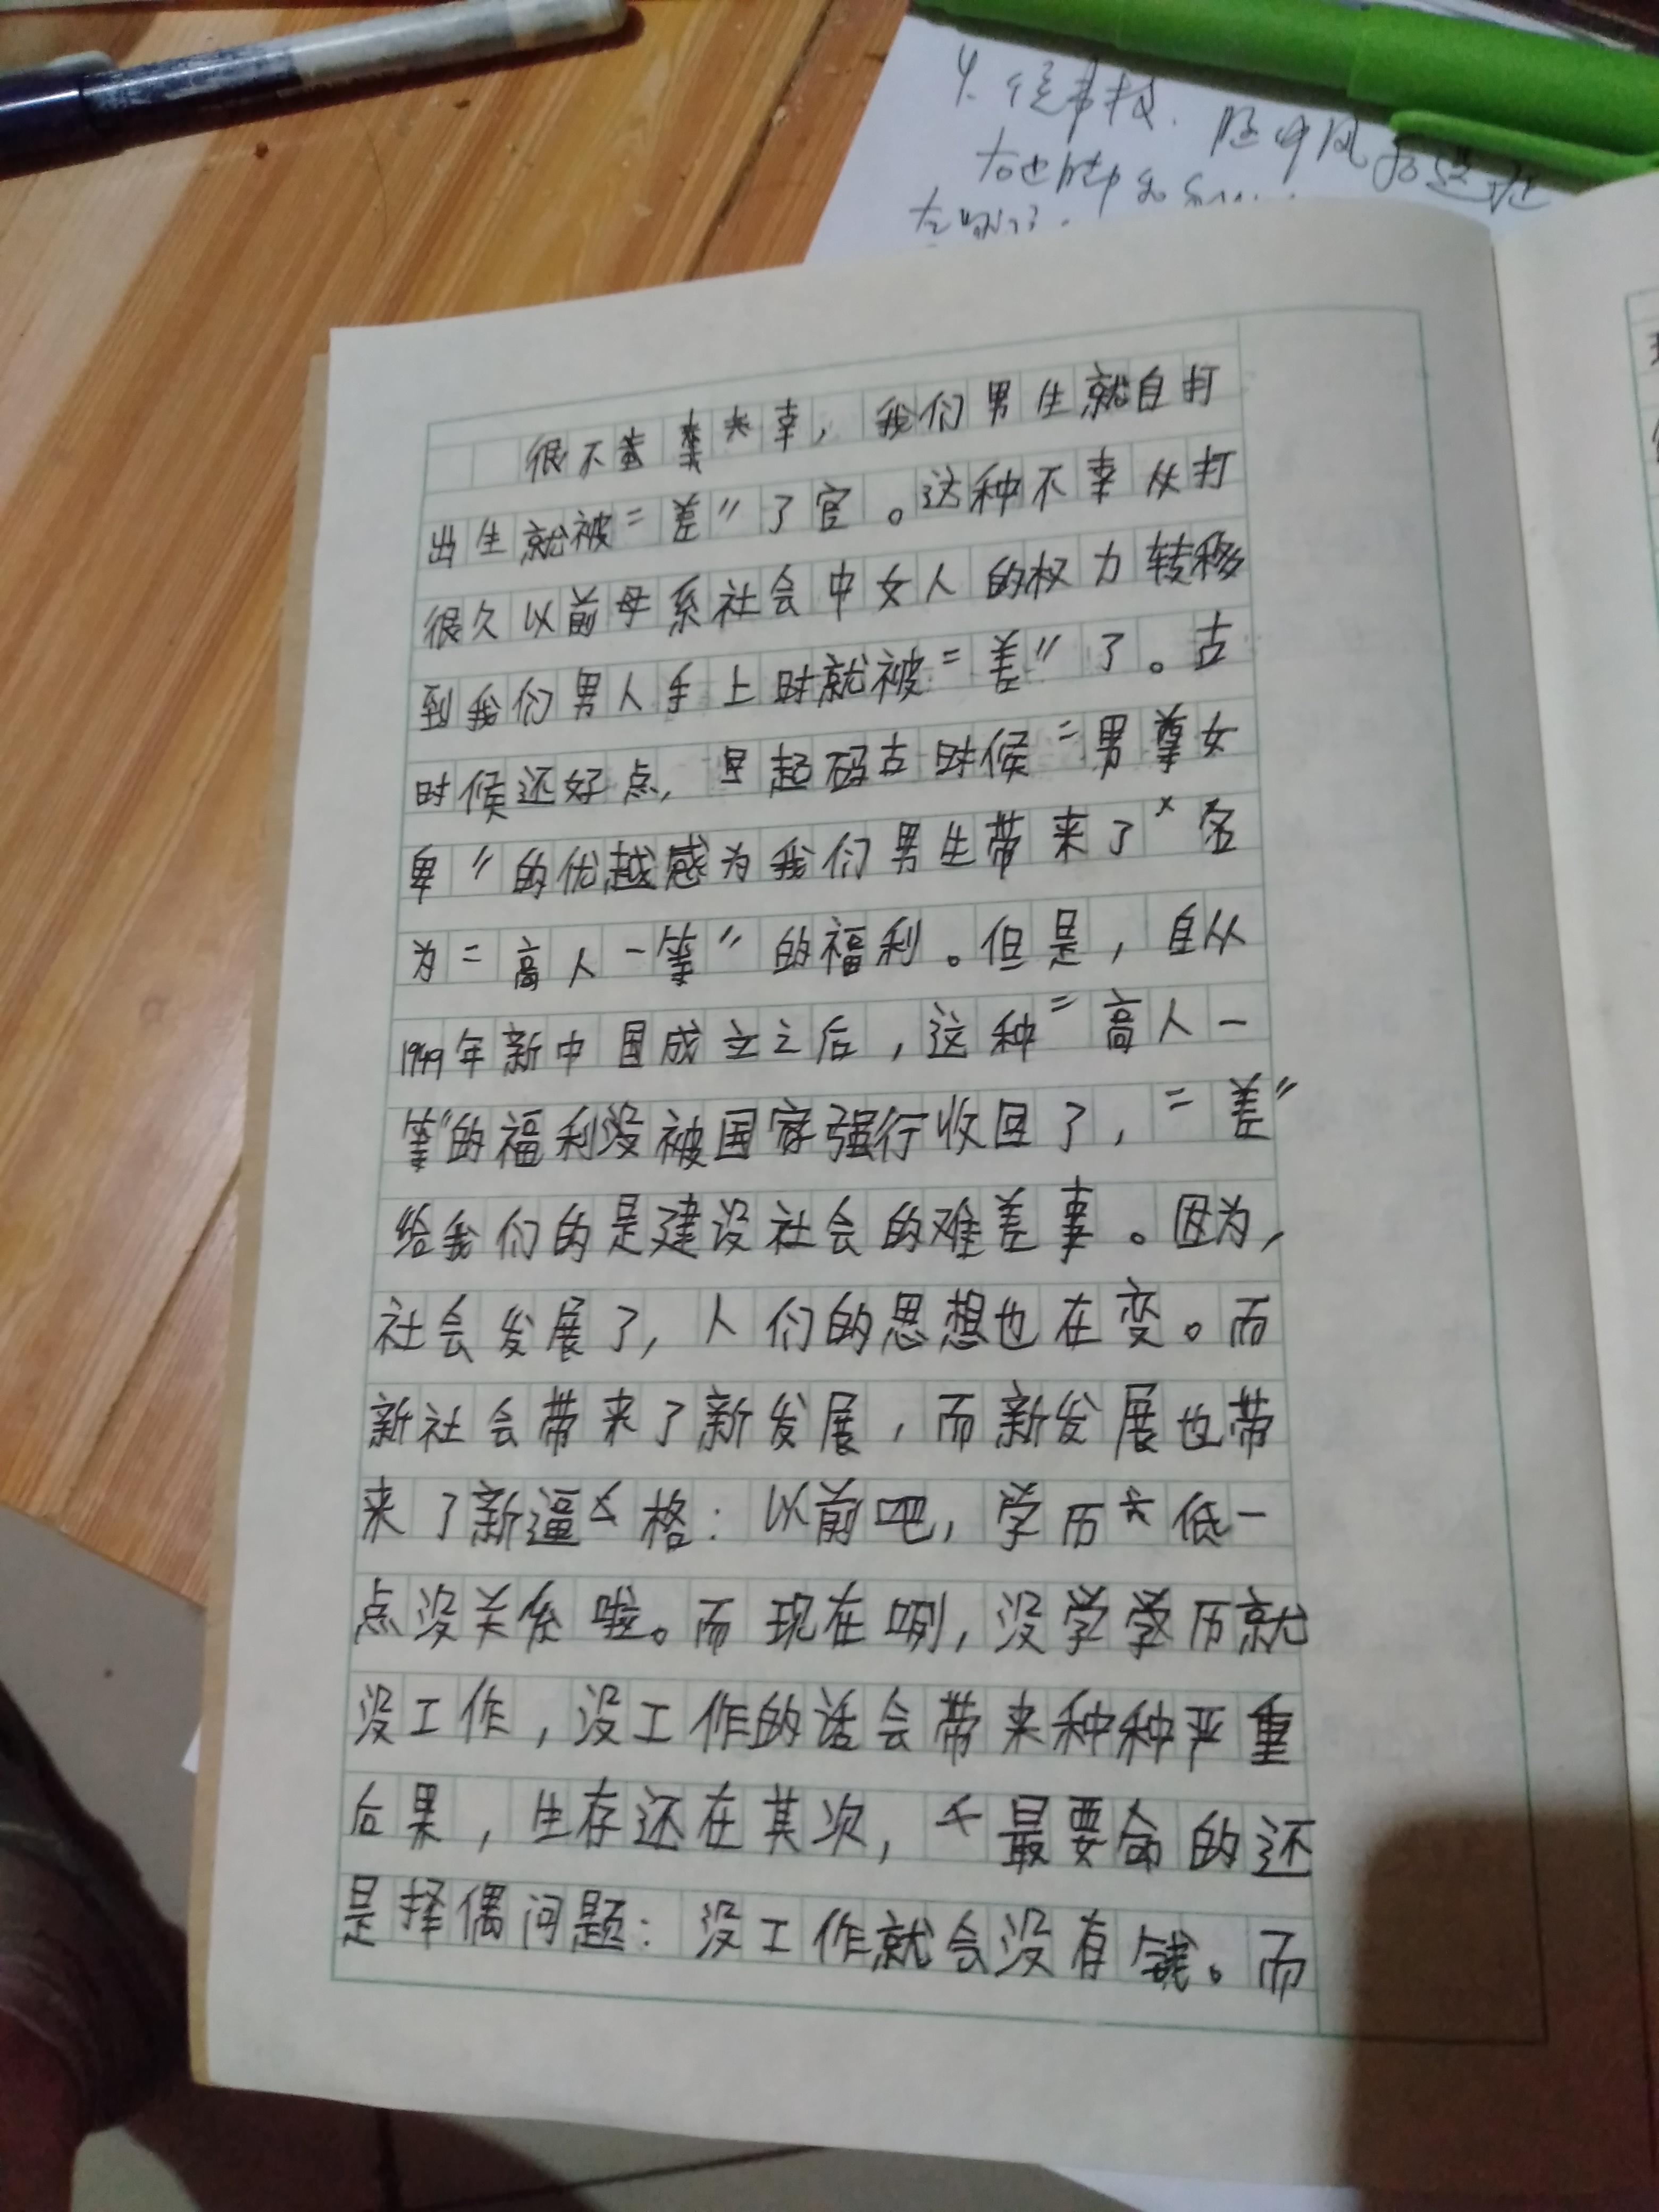 很不幸，我们男生就自打
出生就被“差”了官。这种不幸从打
很久以前母系社会中女人的权力转移
到我们男人手上时就被“差”了。古
时候还好点，起码古时候“男尊女
卑”的优越感为我们男生带来了名
为“高人一等”的福利。但是，自从
1949年新中国成立之后，这种“高人一
等”的福利没被国家强行收回了，“差”
给我们的是建设社会的难差事。因为，
社会发展了，人们的思想也在变。而
新社会带来了新发展，而新发展也带
来了新逼格：以前吧，学历低一
点没关系啦。而现在咧，没学历就
没工作，没工作的话会带来种种严重
后果，生存还在其次，最要命的还
是择偶问题：没工作就会没有钱。而